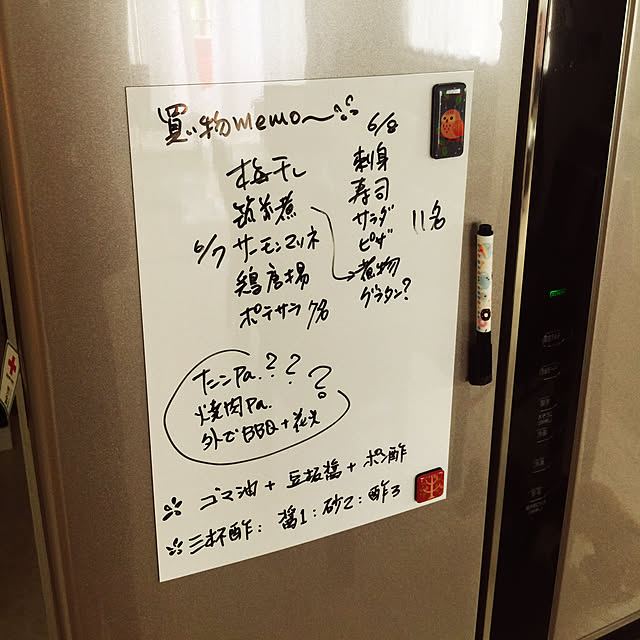 買い物memo〜
梅干し
筑前煮
6/7 サーモンマリネ
鶏唐揚
ポテサラ 7名
6/8
刺身
寿司
サラダ
ピザ
煮物
グラタン?
11名
たこPa.???
焼肉Pa.
外でBBQ+花火
※ ゴマ油 + 豆板醤 + ポン酢
※ 三杯酢: 醤1:砂2:酢3